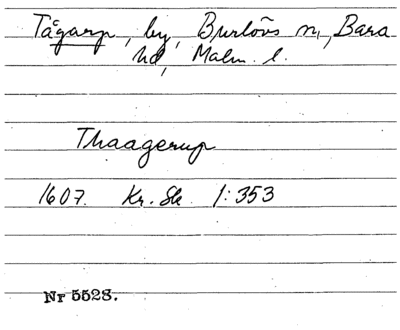 Tågarp, by, Burlövs sn, Bara
hd, Malm. l.
Thaagerup
1607. Kr. Sk. 1:353
Nr 5528.